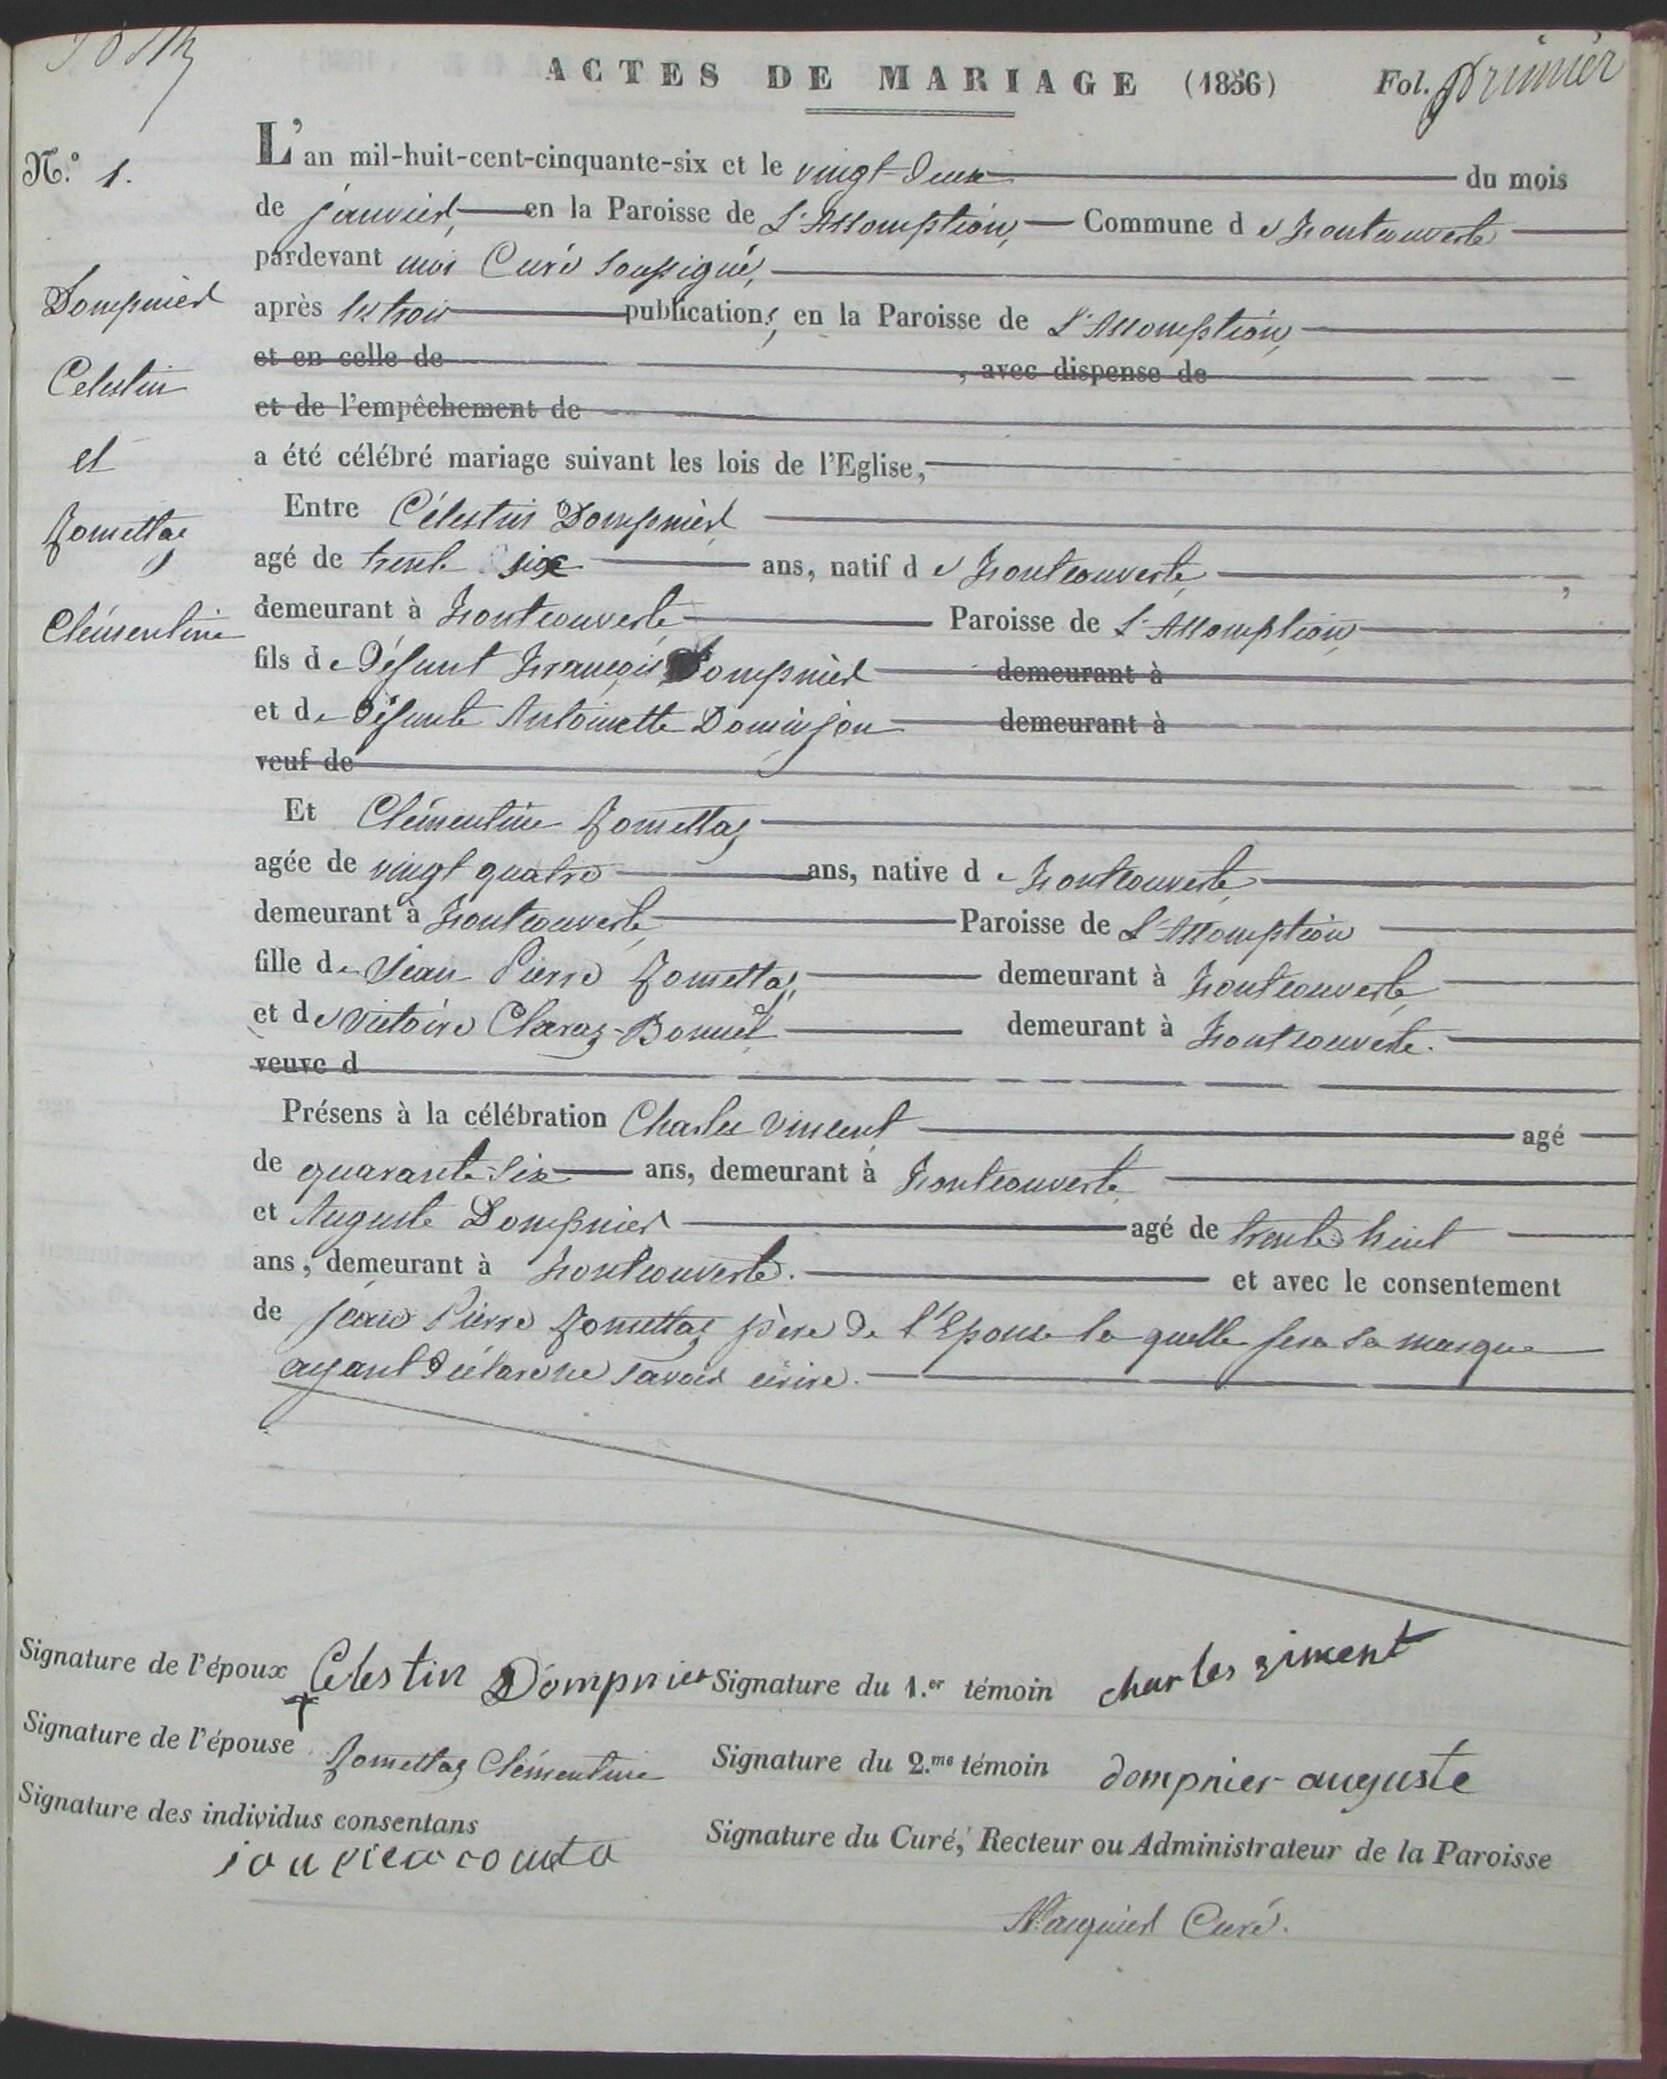 ACTES DE MARIAGE (1856) Fol. premier
N.º 1.
L'an mil-huit-cent-cinquante-six et le vingt-deux du mois
de janvier, en la Paroisse de L'Assomption, Commune de Fontcouverte
pardevant moi Curé soussigné,
après les trois publications, en la Paroisse de L'Assomption,
et en celle de , avec dispense de
et de l'empêchement de
a été célébré mariage suivant les lois de l'Eglise,
Dompnier
Celestin
et
Romettaz
Clémentine
Entre Célestin Dompnier
agé de trente six ans, natif de Fontcouverte,
demeurant à Fontcouverte Paroisse de L'Assomption,
fils de Défunt François Dompnier demeurant à
et de Défunte Antoinette Dominjon demeurant à
veuf de
Et Clémentine Romettaz
agée de vingt quatre ans, native de Fontcouverte,
demeurant à Fontcouverte, Paroisse de L'Assomption
fille de Jean Pierre Romettaz, demeurant à Fontcouverte,
et de Victoire Claraz-Bonnel demeurant à Fontcouverte.
veuve d
Présens à la célébration Charles Vincent agé
de quarante-six ans, demeurant à Fontcouverte,
et Auguste Dompnier agé de trente huit
ans, demeurant à Fontcouverte. et avec le consentement
de Jean Pierre Romettaz père de l'Epouse la quelle fera sa marque
ayant déclaré ne savoir écrire.
Signature de l'époux Celestin Dompnier Signature du 1.er témoin charles vincent
Signature de l'épouse † Romettaz Clémentine Signature du 2.me témoin dompnier auguste
Signature des individus consentans
Signature du Curé, Recteur ou Administrateur de la Paroisse
Curé.